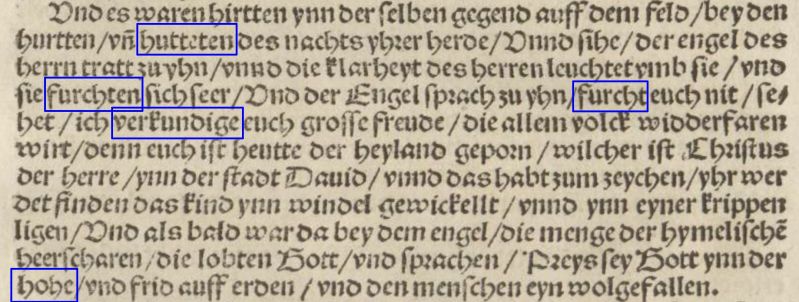 Vnd es waren hirtten ynn der selben gegend auff dem feld/bey den
hurtten/vñ hutteten des nachts yhrer herde/Vnnd sihe/der engel des
herrn tratt zu yhn/vnnd die klarheyt des herren leuchtet vmb sie/vnd
sie furchten sich seer/Vnd der Engel sprach zu yhn/furcht euch nit/se⸗
het/ich verkundige euch grosse freude/die allem volck widderfaren
wirt/denn euch ist heutte der heyland geporn/wilcher ist Christus
der herre/ynn der stadt Dauid/vnnd das habt zum zeychen/yhr wer
det finden das kind ynn windel gewickellt/vnnd ynn eyner krippen
ligen/Vnd als bald war da bey dem engel/die menge der hymelischẽ
heerscharen/die lobten Gott/vnd sprachen/Preys sey Gott ynn der
hohe/vnd frid auff erden/vnd den menschen eyn wolgefallen.